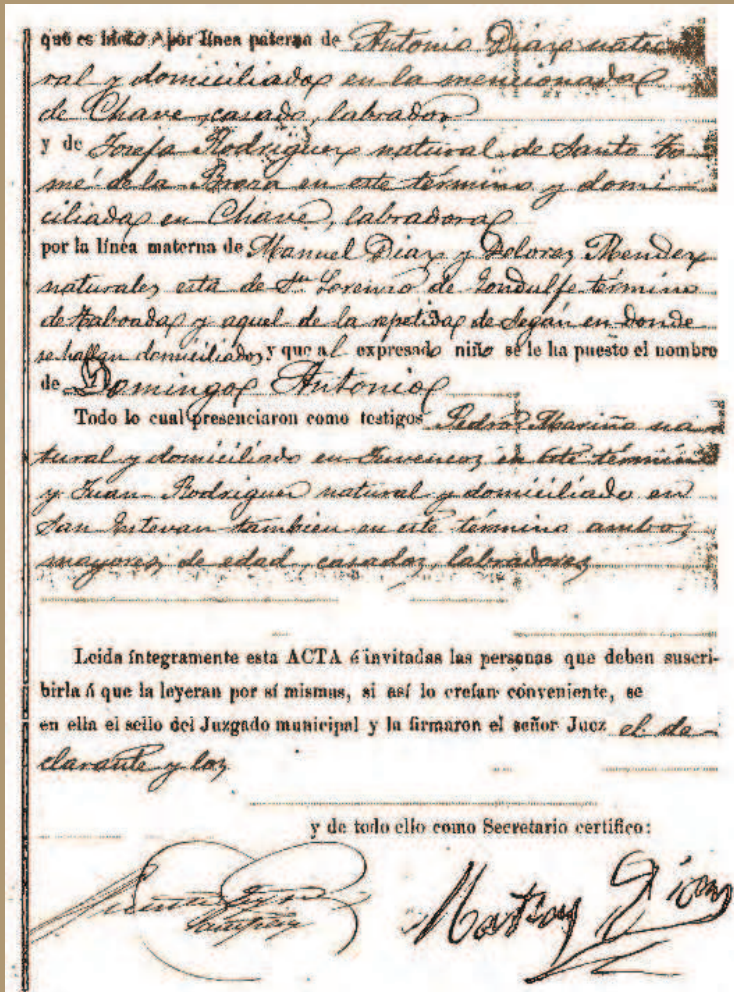 que es nieto por línea paterna de Antonio Diaz natu-
ral y domiciliado en la mencionada
de Chave, casado, labrador
y de Josefa Rodriguez natural de Santo To-
mé de la Broza en este término y domi-
ciliada en Chave, labradora
por la línea materna de Manuel Diaz y Dolores Mendez
naturales esta de Sn Lorenzo de Gondulfe término
de Taboada y aquel de la repetida de Segán en donde
se hallan domiciliados y que al expresado niño se le ha puesto el nombre
de Domingo Antonio
Todo lo cual presenciaron como testigos Pedro Mariño na-
tural y domiciliado en Juvencos en este término
y Juan Rodriguez natural y domiciliado en
San Estevan tambien en este término ambos
mayores de edad, casados, labradores
Leida íntegramente esta ACTA é invitadas las personas que deben suscri-
birla á que la leyeran por sí mismas, si así lo creían conveniente, se
en ella el sello del Juzgado municipal y la firmaron el señor Juez el de-
clarante y los
y de todo ello como Secretario certifico:
Matias Diaz